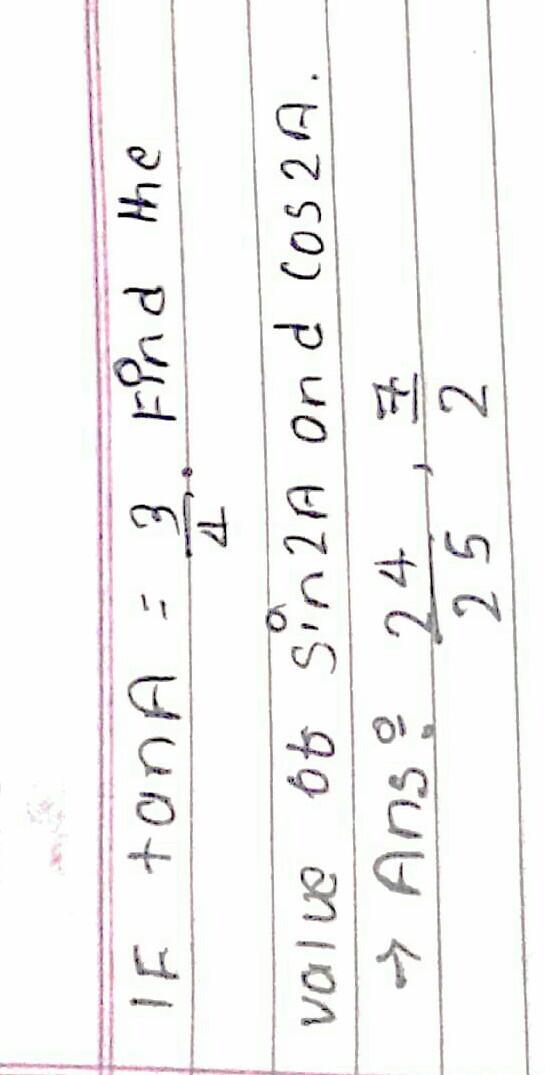 IF tanA = 3/4. Find the
value of sin2A and cos2A.
→ Ans: 24/25, 7/2